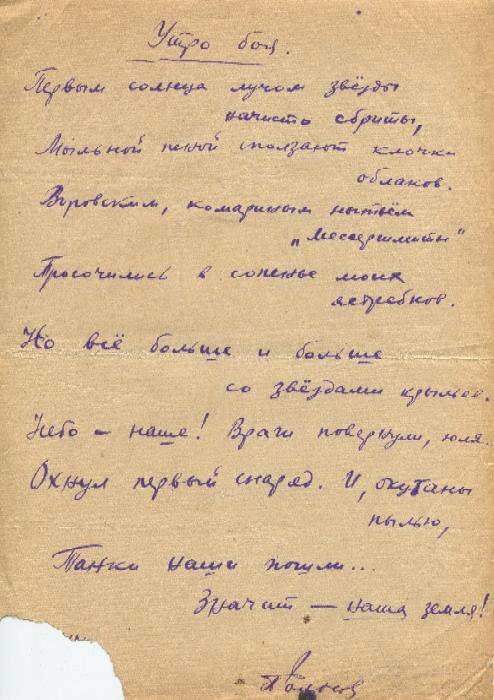 Утро боя.
Первым солнца лучом звёзды
начисто сбриты,
Мыльной пеной сползают клочки
облаков.
Воровским, комариным нытьём
„Мессершмиты"
Просочились в сопенье моих
ястребков.
Но всё больше и больше
со звёздами крыльев.
Небо – наше! Враги повернули, юля.
Охнул первый снаряд. И, окутаны
пылью,
Танки наши пошли...
Значит – наша земля!